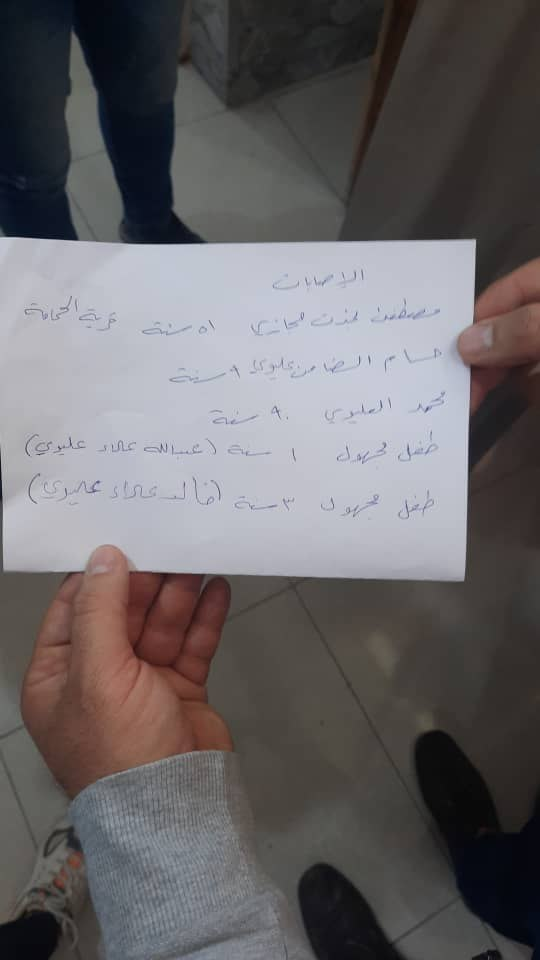 الإصابات
مصطفى عزت حجازي ٥١ سنة قرية الحمامة
حسام الضامن عليوي ٩ سنة
محمد العليوي ٩٠ سنة
طفل مجهول ١ سنة (عبدالله علاء عليوي)
طفل مجهول ٣ سنة (خالد علاء عليوي)